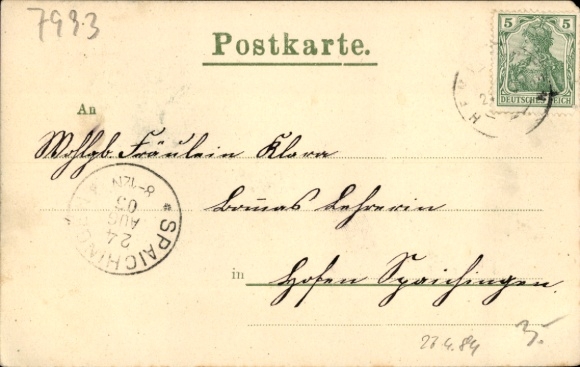 7993
Postkarte.
5
DEUTSCHES REICH
An
Wohlgb. Fräulein Klara
Lehrerin
in Hofen Spaichingen.
SPAICHINGEN
24
AUG
03
8-12N
23.4.84
3.-